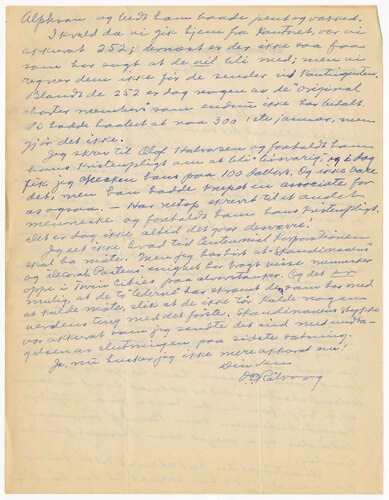 Alphson og bedt ham baade pent og vakkert.
Ikveld da vi gik hjem fra Kontoret var vi
akkurat 252; dernæst er der ikke saa faa
som har sagt at de vil bli med; men vi
regner dem ikke før de sender ind Kontingenten.
Blandt de 252 er dog nogen av de "original
charter members" som endnu ikke har betalt.
Vi hadde haabet at naa 300 1ste januar, men
gjør det ikke.
Jeg skrev til Olof Halvorsen og foreholdt ham
hans Kristenpligt om at bli "livsvarig", og i dag
fik jeg Checken hans paa 100 dollars. Og ikke bare
det, men han hadde knepet en associate for
os ogsaa. — Har netop skrevet til et andet
menneske og foreholdt ham hans kristenpligt.
Det er dog ikke altid det gør desværre.
Jeg vet ikke hvad tid Centennial korporationen
skal ha møte. Men jeg har hørt at "Skandinavens"
og "Decorah Postens" enighet har bragt visse mennesker
oppe i Twin Cities paa alvorstanker. Og det er
mulig, at de to "lederne" har skræmt dem saa med
at kalde møte, slik at de ikke tør kalde nogen
verdens ting med det første. Skandinavens stykke
var akkurat som jeg sendte det ind med undta-
gelsen av slutningen paa sidste sætning.
Ja, nu husker jeg ikke mere akkurat nu!
Din ven
O E Rølvaag